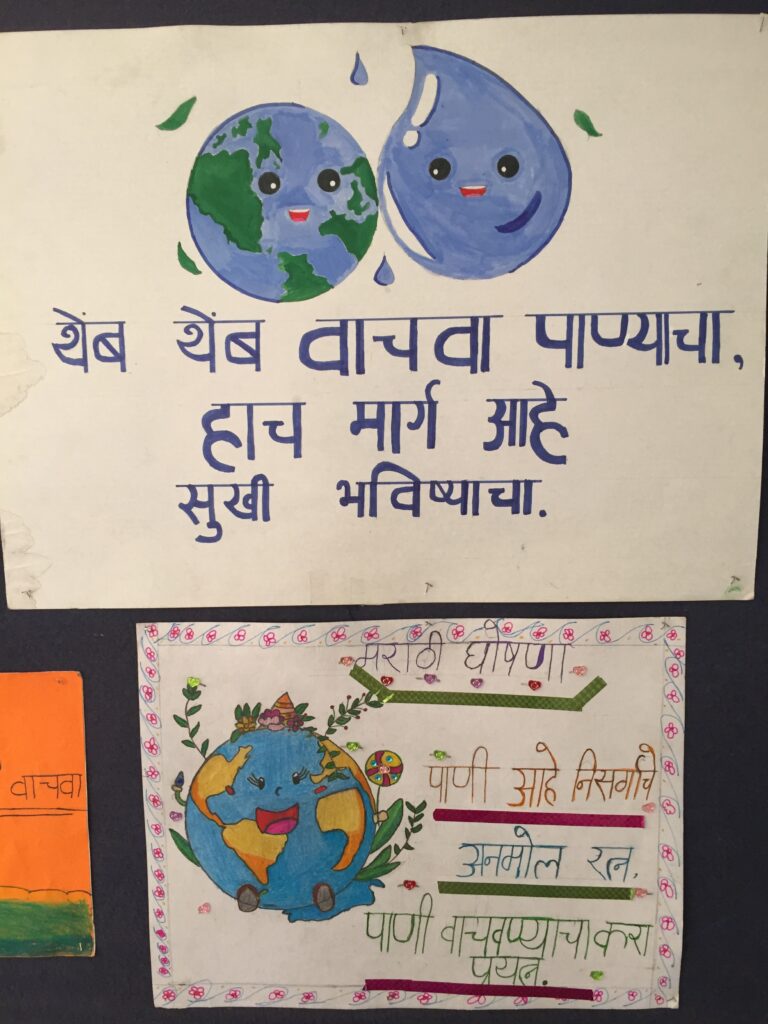 थेंब थेंब वाचवा पाण्याचा,
हाच मार्ग आहे
सुखी भविष्याचा.
मराठी घोषणा
पाणी आहे निसर्गाचे
अनमोल रत्न.
पाणी वाचवण्याचा करा
प्रयत्न.
वाचवा